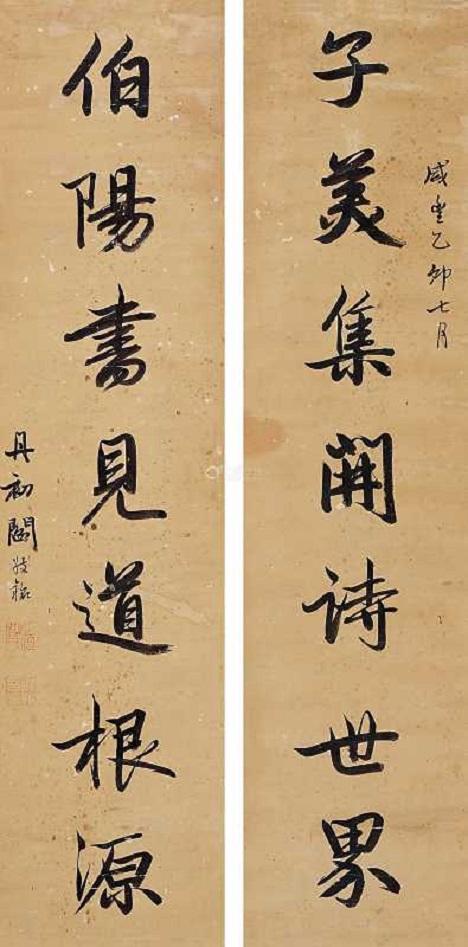 咸豐乙卯七月
子美集開詩世界
伯陽書見道根源
丹初閻敬銘